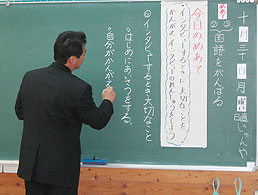 十月三十日月曜日
めあて
②③国語をがんばる
今日のめあて
・インタビューするとき、大切なことを
かんがえ、インタビューのれんしゅうをしよう。
◎インタビューするとき大切なこと
○はじめにあいさつをする。
○自分がかんがえ